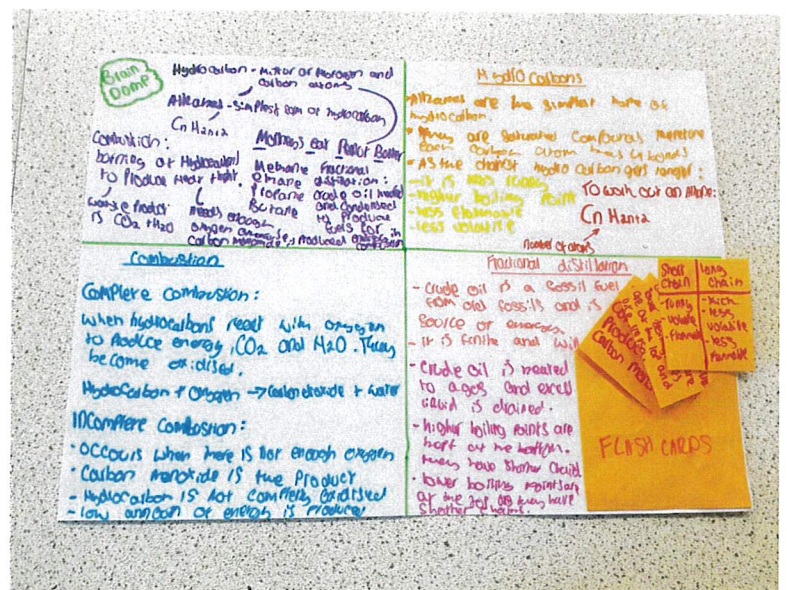 Brain
Domp
Hydrocarbon - mixtur of hydrogen and
carbon atoms
Alkanes - simplest form of hydrocarbon
CnH2n+2
Monkeys eat Peanut Butter
Combustion:
burning of Hydrocarbons
to Produce Heat + light.
waste Product
is CO2 + H2O
needs enough
oxygen
carbon monoxide
Methane
ethane
Propane
Butane
Fractional
distillation:
crude oil heated
and condensed
to produce
fuels for
Hydrocarbons
Alkanes are the simplest form of
hydrocarbon.
They are saturated compounds therefore
each carbon atom has 4 bonds
- As the chainst hydro carbon gets longer:
- it is less runny
- higher boiling point
- less flammable
- less volatile
To work out an Alkane:
CnH2n+2
number of atoms
Combustion
Complete combustion:
when hydrocarbons react with oxygen
to produce energy, CO2 and H2O. They
become oxidised.
Hydrocarbon + Oxygen → Carbon dioxide + water
Incomplete Combustion:
• occurs when there is not enough oxygen
• Carbon monoxide is the Product
- Hydrocarbon is not completly oxidised
- low amount of energy is produced
Fractional distillation
- crude oil is a fossil fuel
from old fossils and is
source of energy
- it is finite and will
- Crude oil is heated
to a gas and excess
liquid is drained.
- higher boiling Points are
at the bottom.
they have shorter chains
• lower boiling points are
at the top as they have
shorter chains.
Short
Chain
long
chain
- runny
- volatile
- thick
- less
volatile
- less
flammable
Produce
Carbon
FLASH CARDS